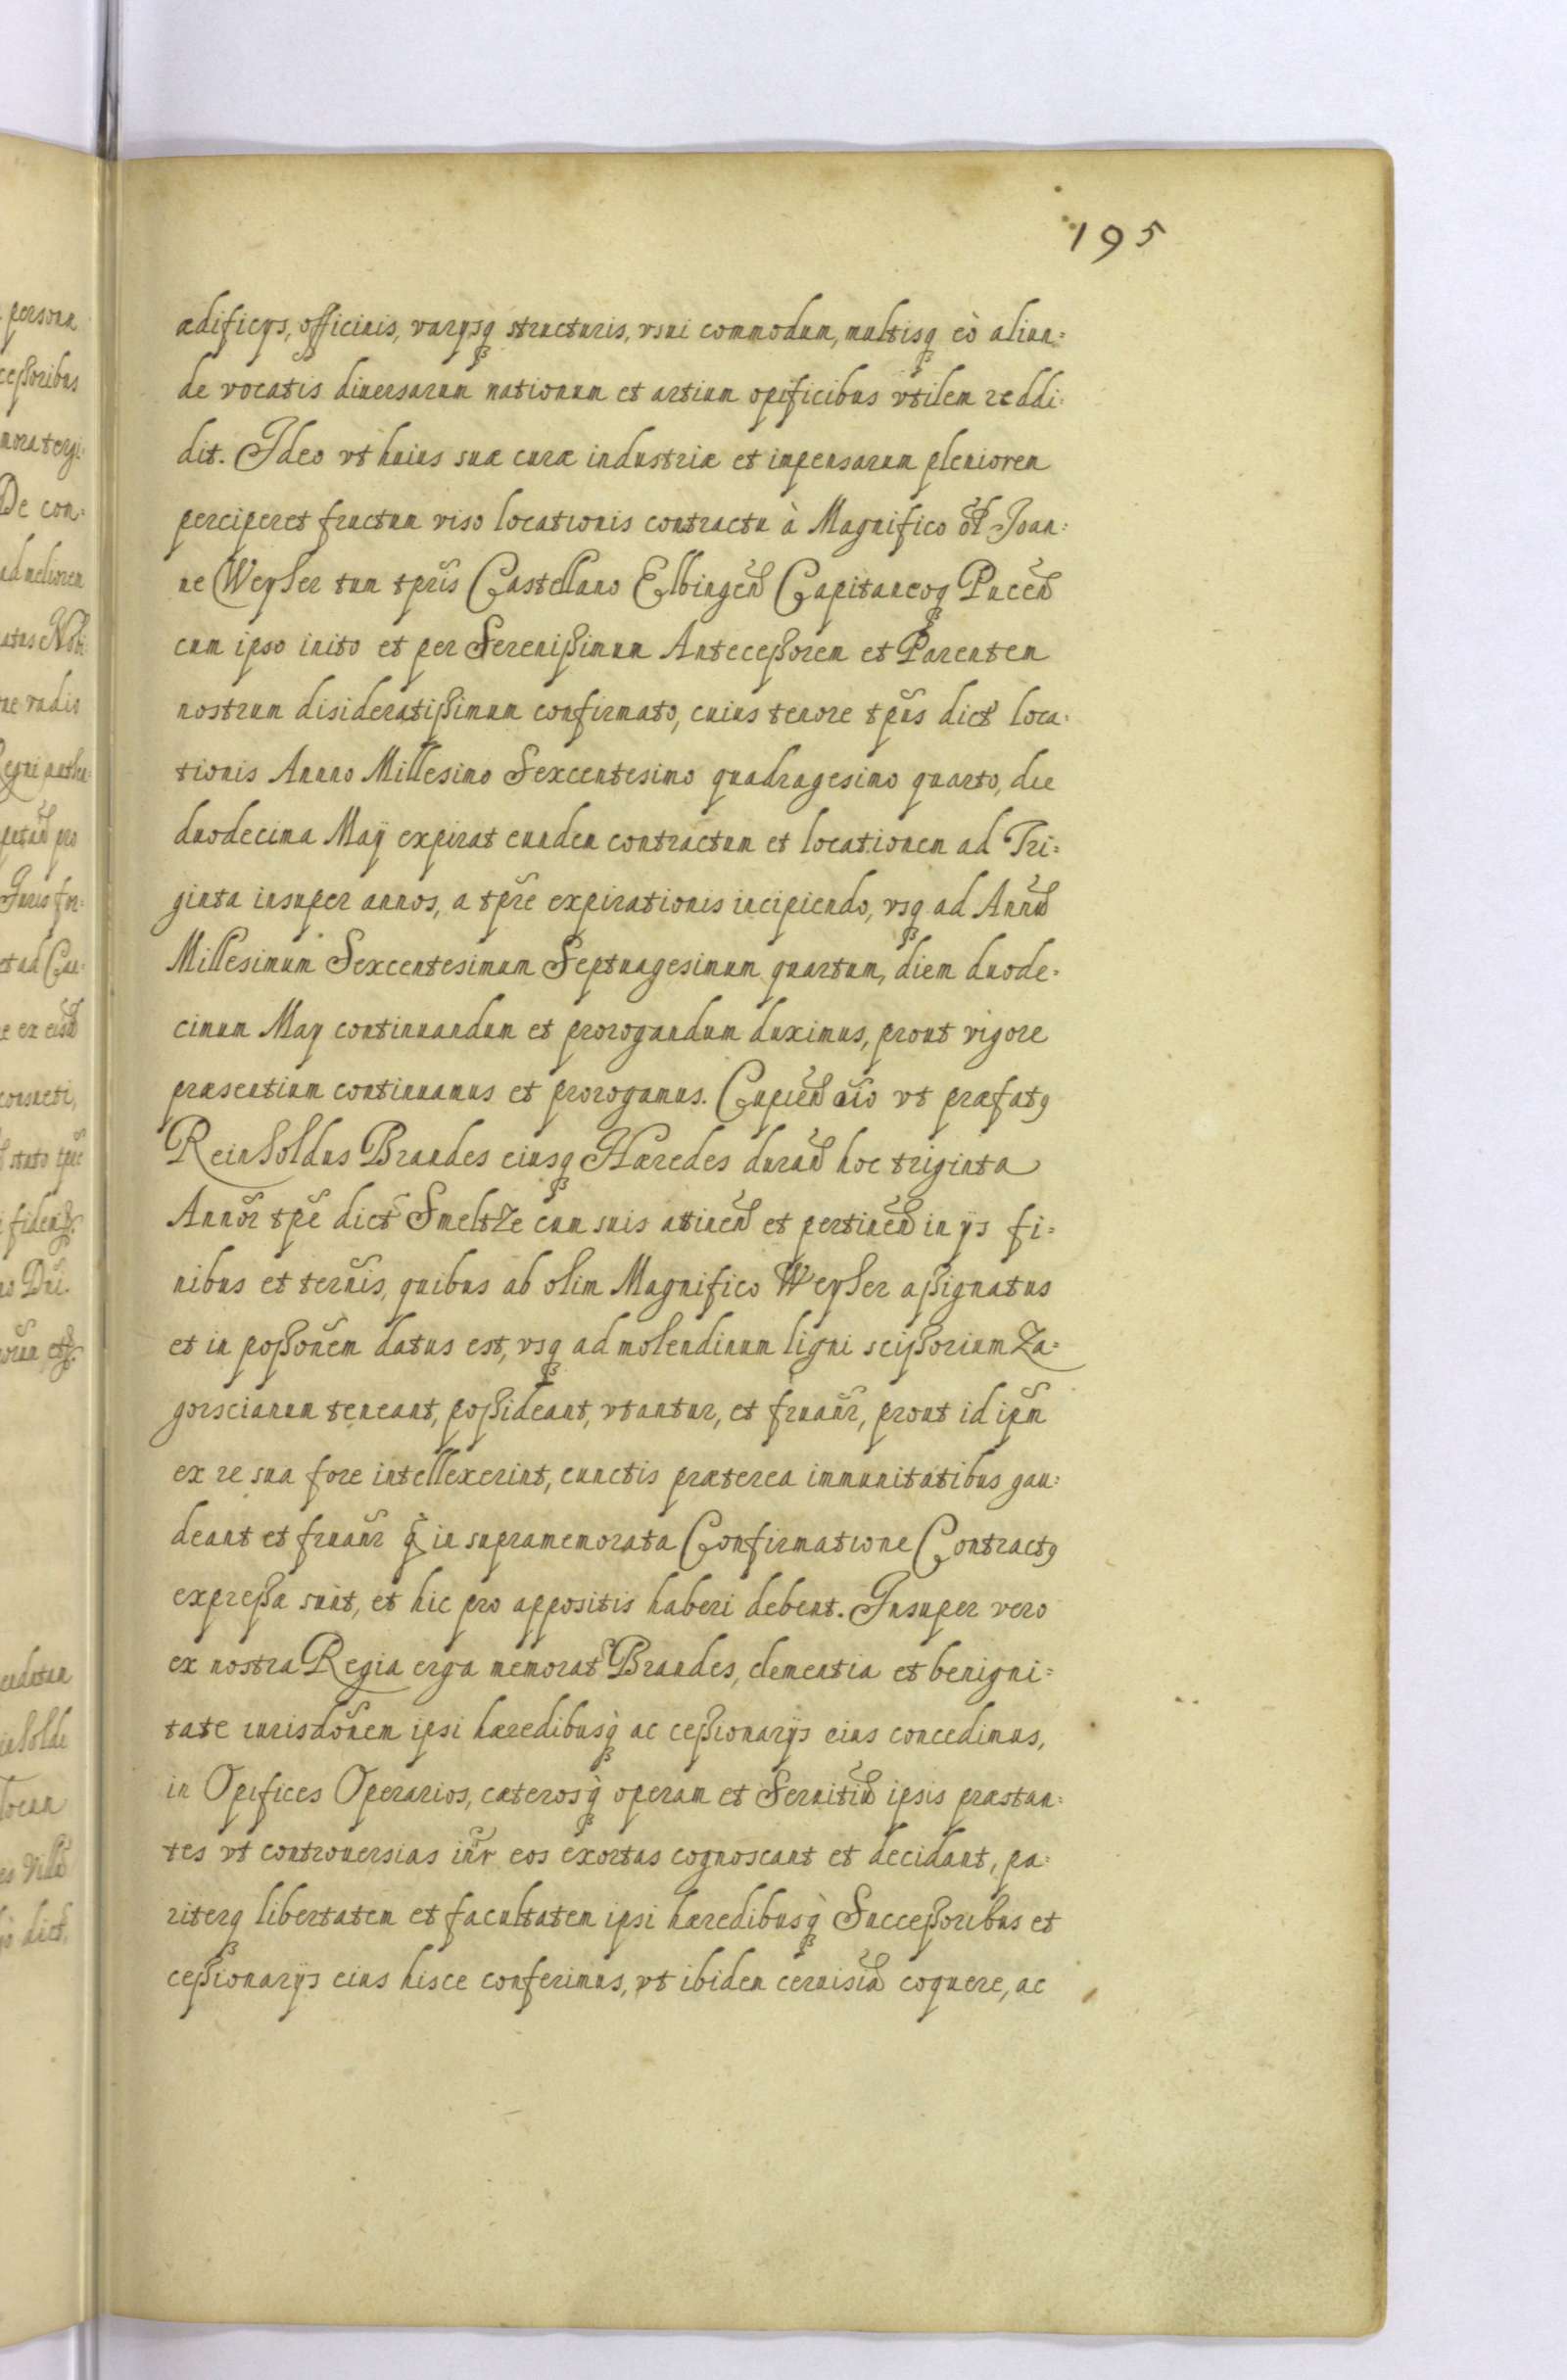 195
ædificÿs, officinis, varÿsq structuris, vsui commodum, multisq eò aliun=
de vocatis diuersarum nationum et artium opificibus vtilem reddi=
dit. Ideo vt huius suæ curæ industriæ et impensarum pleniorem
perciperet fructum viso locationis contractu à Magnifico ol Joan=
ne Weyher tum tpris Castellano Elbingen Capitaneoq Pucen
cum ipso inito et per Serenißimum Anteceßorem et Parentem
nostrum disideratißimum confirmato, cuius tenore tpus dict loca=
tionis Annno Millesimo Sexcentesimo quadragesimo quarto, die
duodecima Maÿ expirat eundem contractum et locationem ad Tri=
ginta insuper annos, a tpre expirationis incipiendo, vsq ad Annu
Millesimum Sexcentesimum Septuagesimum quartum, diem duode=
cimum Maÿ continuandum et prorogandum duximus, prout vigore
præsentium continuamus et prorogamus. Cupien aio vt præfatq
Reinholdus Brandes eiusq Hæredes duran hoc triginta
Annor tpe dict Smeltze cum suis atinen et pertinen in ÿs fi=
nibus et ternis, quibus ab olim Magnifico Weyher aßignatus
et in poßonem datus est, vsq ad molendinum ligni scißorium Za=
gorscianum teneant, poßideant, vtantur, et fruanr, prout id ipm
ex re sua fore intellexerint, cunctis præterea immunitatibus gau=
deant et fruanr q in supramemorata Confirmatione Contractq
expreßa sunt, et hic pro appositis haberi debent. Insuper vero
ex nostra Regia erga memorat Brandes, clementia et benigni=
tate iurisdonem ipsi hæredibusq ac ceßionarÿs eius concedimus,
in Opifices Operarios, cæterosq operam et Seruitiu ipsis præstan=
tes vt controuersias inr eos exortas cognoscant et decidant, pa=
riterq libertatem et facultatem ipsi hæredibusq Succeßoribus et
ceßionarÿs eius hisce conferimus, vt ibidem ceruisia coquere, ac